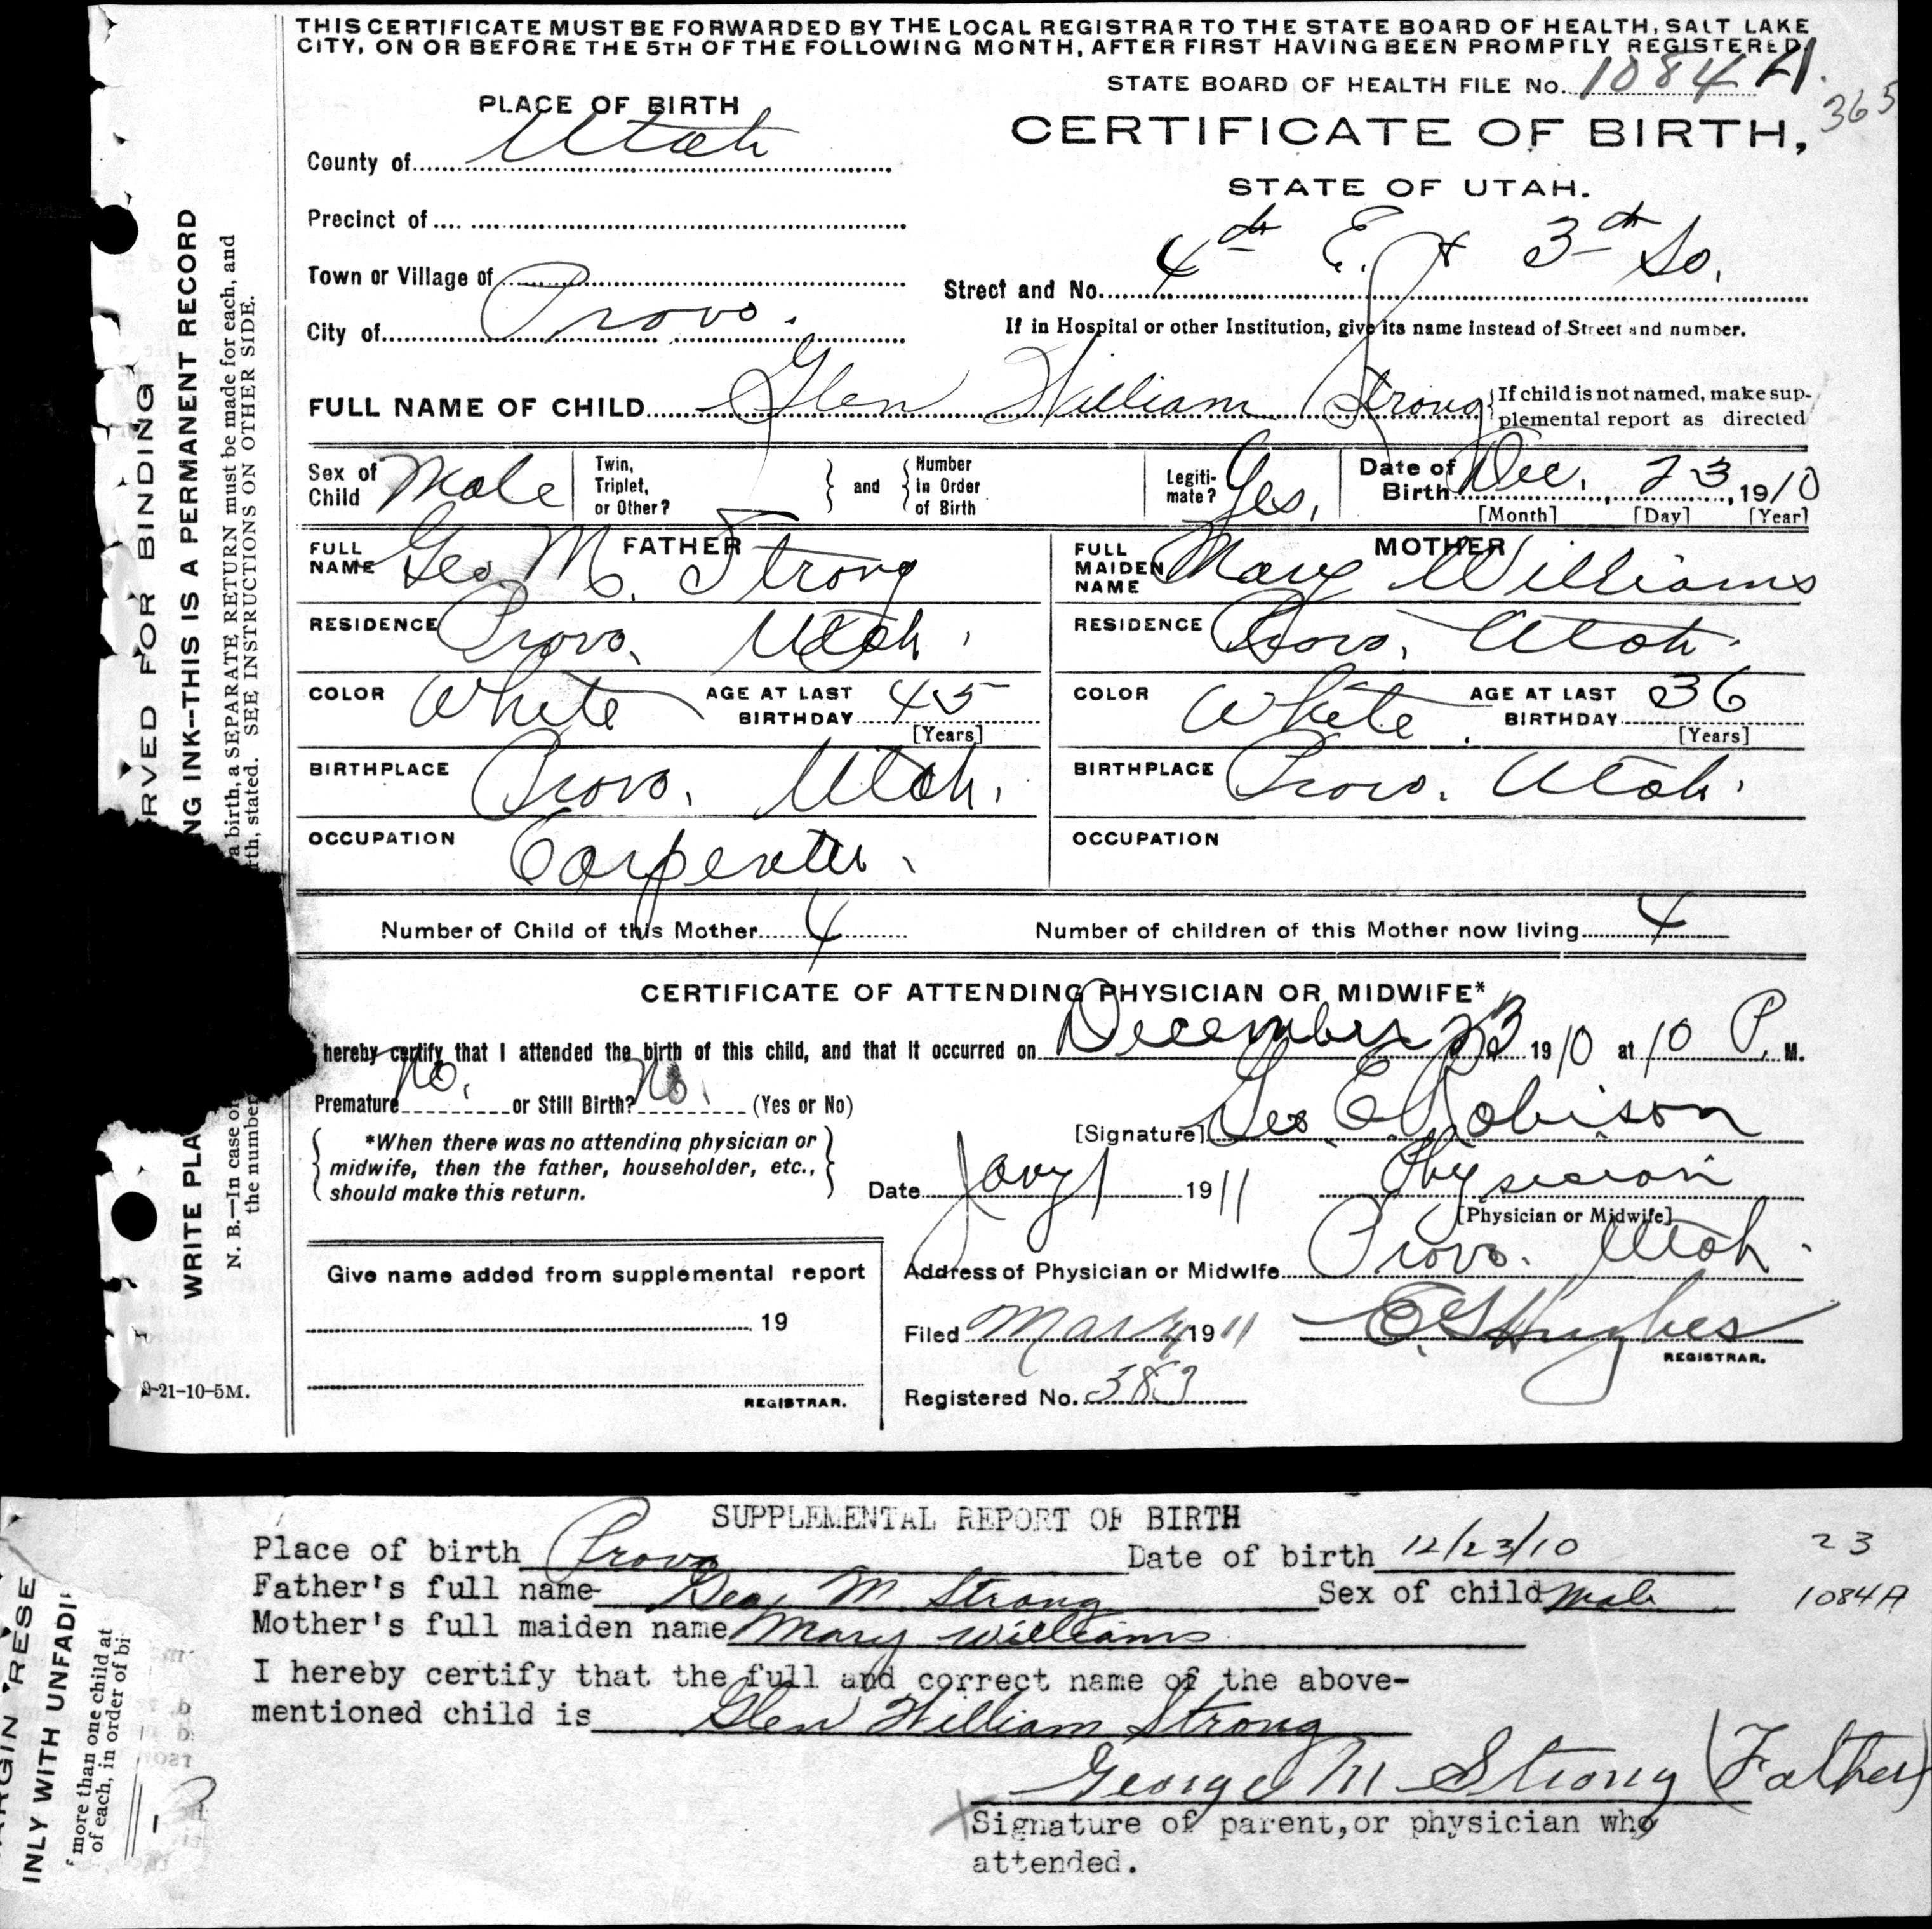 THIS CERTIFICATE MUST BE FORWARDED BY THE LOCAL REGISTRAR TO THE STATE BOARD OF HEALTH, SALT LAKE
CITY, ON OR BEFORE THE 5TH OF THE FOLLOWING MONTH, AFTER FIRST HAVING BEEN PROMPTLY REGISTERED.
STATE BOARD OF HEALTH FILE No. 1084 A.
365
PLACE OF BIRTH
CERTIFICATE OF BIRTH,
STATE OF UTAH.
County of Utah
Precinct of
Town or Village of
City of Provo.
Street and No. 4th E. & 3th So.
If in Hospital or other Institution, give its name instead of Street and number.
FULL NAME OF CHILD Glen William Strong
{If child is not named, make sup-
plemental report as directed
Sex of Child Male
Twin, Triplet, or Other?
and
Number in Order of Birth
Legiti-mate? Yes,
Date of Birth Dec. 23, 1910
[Month] [Day] [Year]
FATHER
FULL NAME Geo M. Strong
RESIDENCE Provo, Utah.
COLOR White AGE AT LAST BIRTHDAY 45
[Years]
BIRTHPLACE Provo, Utah.
OCCUPATION Carpenter.
MOTHER
FULL MAIDEN NAME Mary Williams
RESIDENCE Provo, Utah.
COLOR White. AGE AT LAST BIRTHDAY 36
[Years]
BIRTHPLACE Provo. Utah.
OCCUPATION
Number of Child of this Mother 4 Number of children of this Mother now living 4
CERTIFICATE OF ATTENDING PHYSICIAN OR MIDWIFE*
hereby certify that I attended the birth of this child, and that it occurred on December 23 1910 at 10 P. M.
Premature No. or Still Birth? No. (Yes or No)
*When there was no attending physician or
midwife, then the father, householder, etc.,
should make this return.
[Signature] Geo E Robison
Date Jany 1 1911 Physician
[Physician or Midwife]
Address of Physician or Midwife Provo. Utah.
Give name added from supplemental report
19
REGISTRAR.
Filed Mar 4 1911 E. G. Hughes
REGISTRAR.
Registered No. 383
9-21-10-5M.
RVED FOR BINDING
WRITE PLA
NG INK--THIS IS A PERMANENT RECORD
N. B.—In case of
a birth, a SEPARATE RETURN must be made for each, and
the number
rth, stated. SEE INSTRUCTIONS ON OTHER SIDE.
SUPPLEMENTAL REPORT OF BIRTH
Place of birth Provo Date of birth 12/23/10
23
Father's full name Geo. M. Strong Sex of child Male
1084A
Mother's full maiden name Mary Williams
I hereby certify that the full and correct name of the above-
mentioned child is Glen William Strong
George M Strong (Father)
Signature of parent, or physician who
attended.
ARGIN RESE
INLY WITH UNFADI
more than one child at
of each, in order of bi